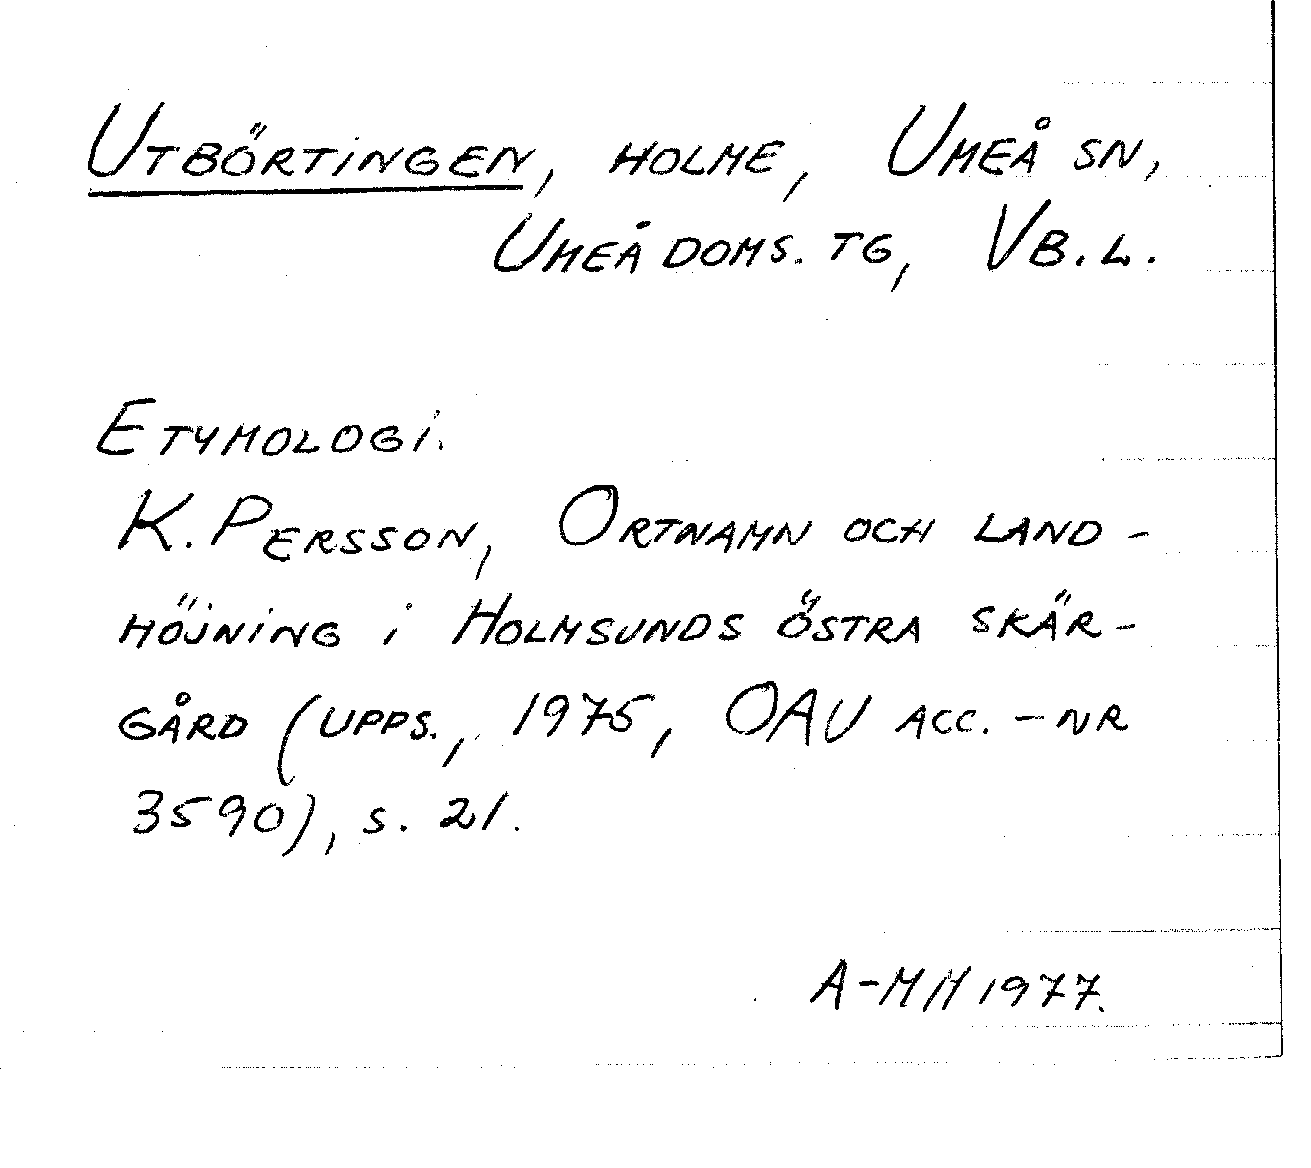 Utbörtingen, holme, Umeå sn,
Umeå doms. tg, Vb.l.
Etymologi.
K. Persson, Ortnamn och land-
höjning i Holmsunds östra skär-
gård (Upps., 1975, OAU acc.-nr
3590), s. 21.
A-MH 1977.